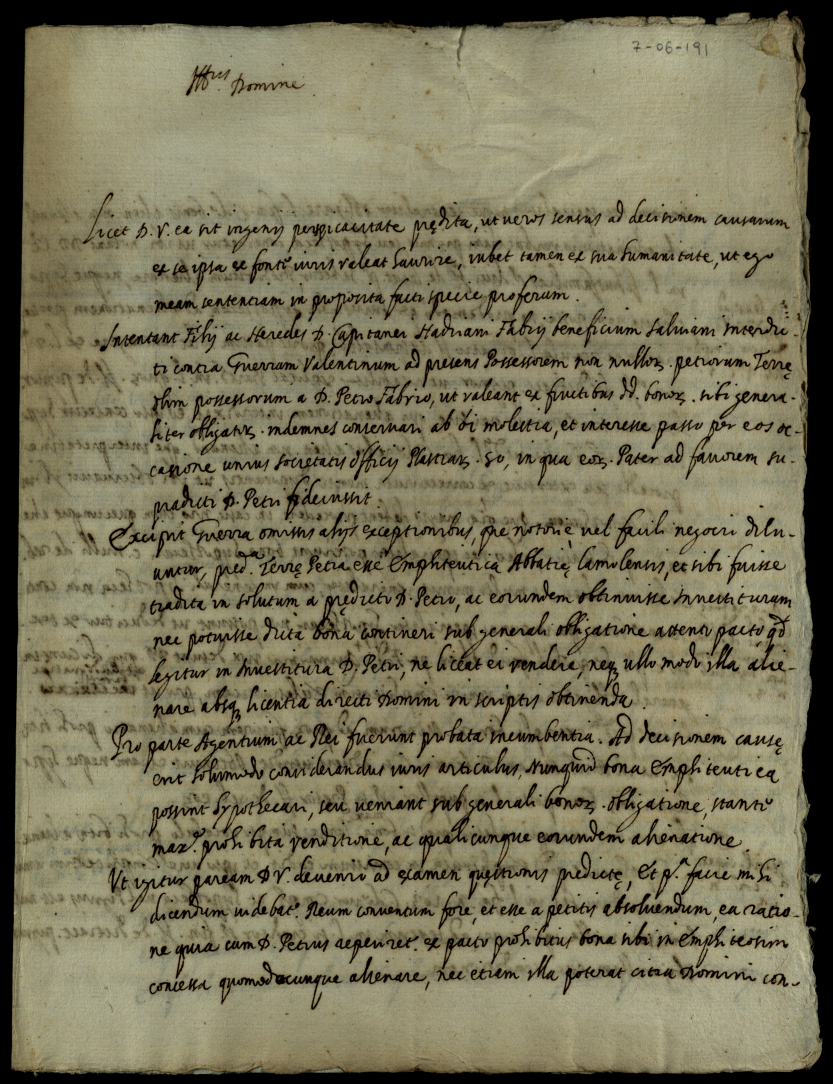 7-06-191
Ill.ris Domine
Licet D. V. ea sit ingenij perspicacitate prędita, ut veros sensus ad decisionem causarum
ex se ipsa ex fonte iuris valeat haurire, iubet tamen ex sua humanitate, ut ego
meam sententiam in proposita facti specie proferam.
Intentant Filij ac Heredes D. Capitanei Hadriani Fabrij beneficium salviani interdic-
ti contra Guerram Valentinum ad presens Possessorem non nulloꝝ. petiorum Terrę
olim possessorum a D. Petro Fabrio, ut valeant ex fructibus dd. bonoꝝ. sibi genera-
liter obligatoꝝ. indemnes conservari ab oi molestia, et interesse passo per eos oc-
casione unius societatis officij Plastraꝝ. 50, in qua eoꝝ. Pater ad favorem su-
pradicti D. Petri fideiussit.
Excipit Guerra omissis alijs exceptionibus, que notorie vel facili negocio dilu-
untur, pred.ª Terrę Petia esse Emphiteutica Abbatię Lamolensis, et sibi fuisse
tradita in solutum a prędicto D. Petro, ac eorundem obtinuisse Investituram
nec potuisse dicta bona contineri sub generali obligatione attento pacto qd
legitur in Investitura D. Petri, ne liceat ei vendere, neqꝫ ullo modo illa alie-
nare absqꝫ licentia directi Domini in scriptis obtinenda.
Pro parte Agentium ac Rei fuerunt probata incumbentia. Ad decisionem causę
erit solummodo considerandus iuris articulus, Nunquid bona Emphiteutica
possint hypothecari, seu veniant sub generali bonoꝝ. obligatione, stante
max.e prohibita venditione, ac qualicunque eorundem alienatione.
Ut igitur paream D V. devenio ad examen quęstionis predictę, Et p.ª facie mihi
dicendum videbat.r Reum conventum fore, et esse a petitis absolvendum, ea ratio-
ne quia cum D. Petrus reperiret.r ex pacto prohibitus bona sibi in Emphiteosim
concessa quomodocunque alienare, nec etiam illa poterat citra Domini con-